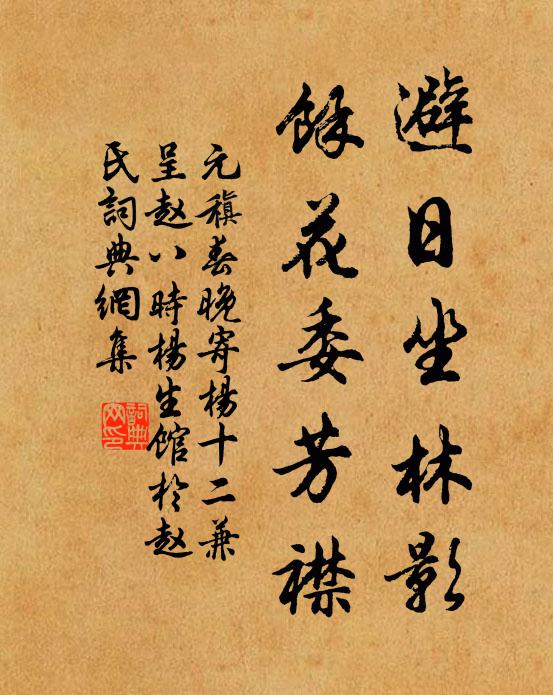 避日坐林影
餘花委芳襟
元稹春晚寄楊十二兼
呈赵八時楊生館於赵
氏詞典網集
詞典
网印